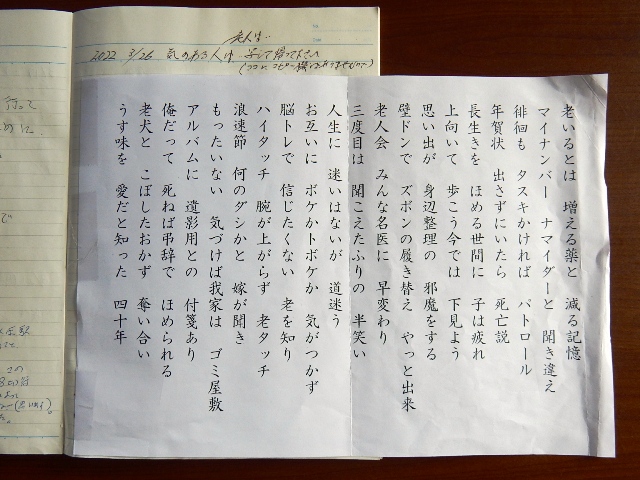 老人は
2022 3/26 気のある人は
老いるとは 増える薬と 減る記憶
マイナンバー ナマイダーと 聞き違え
徘徊も タスキかければ パトロール
年賀状 出さずにいたら 死亡説
長生きを ほめる世間に 子は疲れ
上向いて 歩こう今では 下見よう
思い出が 身辺整理の 邪魔をする
壁ドンで ズボンの履き替え やっと出来
老人会 みんな名医に 早変わり
三度目は 聞こえたふりの 半笑い
人生に 迷いはないが 道迷う
お互いに ボケかトボケか 気がつかず
脳トレで 信じたくない 老を知り
ハイタッチ 腕が上がらず 老タッチ
浪速節 何のダシかと 嫁が聞き
もったいない 気づけば我家は ゴミ屋敷
アルバムに 遺影用との 付箋あり
俺だって 死ねば弔辞で ほめられる
老犬と こぼしたおかず 奪い合い
うす味を 愛だと知った 四十年